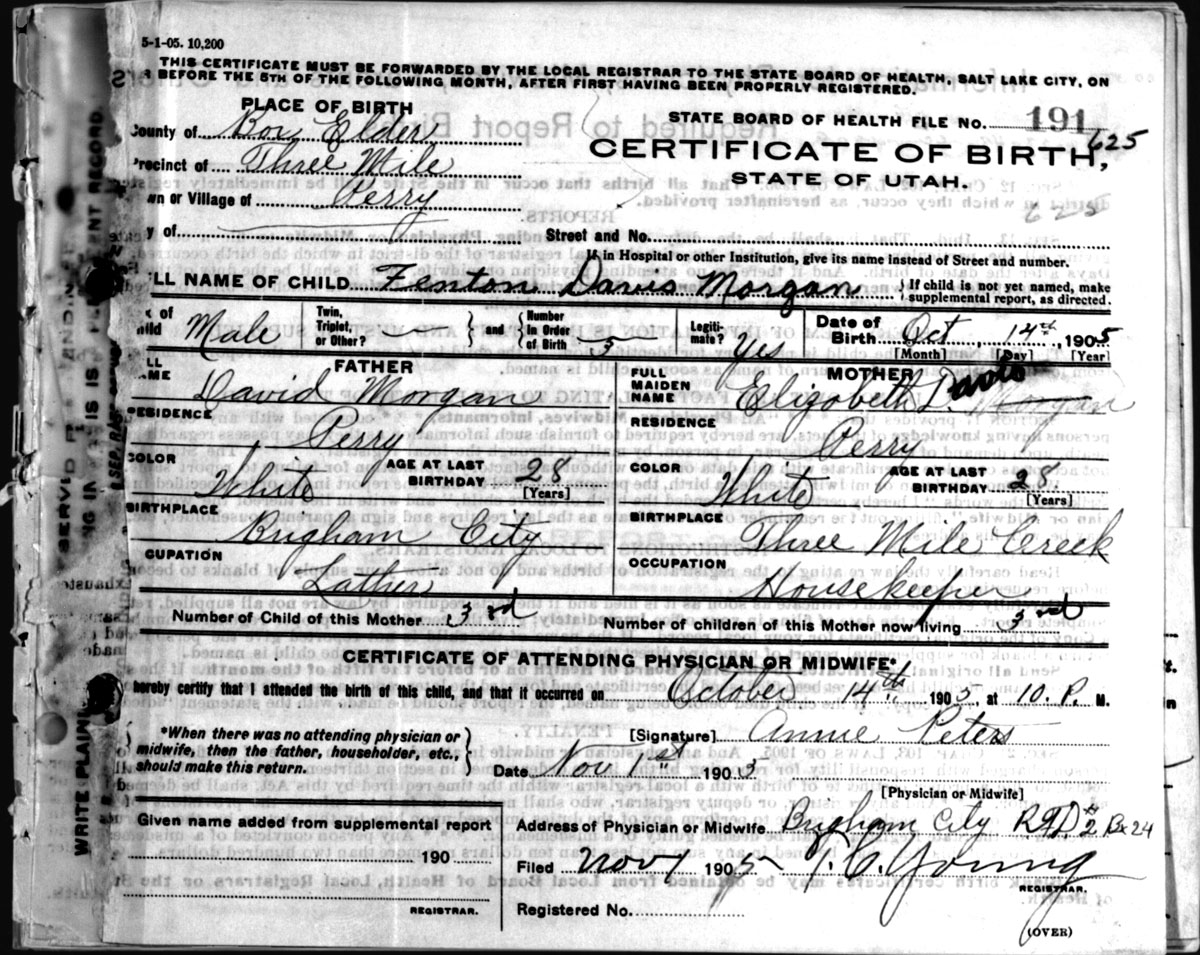 5-1-05. 10,200
THIS CERTIFICATE MUST BE FORWARDED BY THE LOCAL REGISTRAR TO THE STATE BOARD OF HEALTH, SALT LAKE CITY, ON
BEFORE THE 5TH OF THE FOLLOWING MONTH, AFTER FIRST HAVING BEEN PROPERLY REGISTERED.
PLACE OF BIRTH
County of Box Elder
STATE BOARD OF HEALTH FILE NO. 191
625
Precinct of Three Mile
CERTIFICATE OF BIRTH,
STATE OF UTAH.
wn or Village of Perry
625
y of
Street and No.
If in Hospital or other Institution, give its name instead of Street and number.
LL NAME OF CHILD Fenton Davis Morgan
If child is not yet named, make
supplemental report, as directed.
x of
hild Male
Twin,
Triplet,
or Other?
and
Number
in Order
of Birth 3
Legiti-
mate? Yes
Date of
Birth Oct 14th, 1905
[Month] [Day] [Year]
FATHER
LL
AME David Morgan
RESIDENCE
Perry
COLOR
White
AGE AT LAST
BIRTHDAY 28
[Years]
BIRTHPLACE
Brigham City
CUPATION
Lather
MOTHER
FULL
MAIDEN
NAME Elizabeth D. Davis Morgan
RESIDENCE
Perry
COLOR
White
AGE AT LAST
BIRTHDAY 28
[Years]
BIRTHPLACE
Three Mile Creek
OCCUPATION
Housekeeper
Number of Child of this Mother 3rd
Number of children of this Mother now living 3rd
CERTIFICATE OF ATTENDING PHYSICIAN OR MIDWIFE*
hereby certify that I attended the birth of this child, and that it occurred on October 14th 1905, at 10. P. M.
*When there was no attending physician or
midwife, then the father, householder, etc.,
should make this return.
[Signature] Annie Peters
Date Nov 1st 1905
[Physician or Midwife]
Given name added from supplemental report
190
REGISTRAR.
Address of Physician or Midwife Brigham City RFD #2 Bx 24
Filed Nov 1 1905 Young
REGISTRAR.
Registered No.
(OVER)